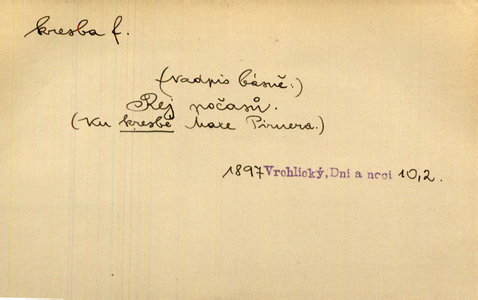 kresba f.
(Nadpis básně:)
Rej počasů.
(Ku kresbě Maxe Pirnera.)
1897 Vrchlický, Dni a noci 10,2.